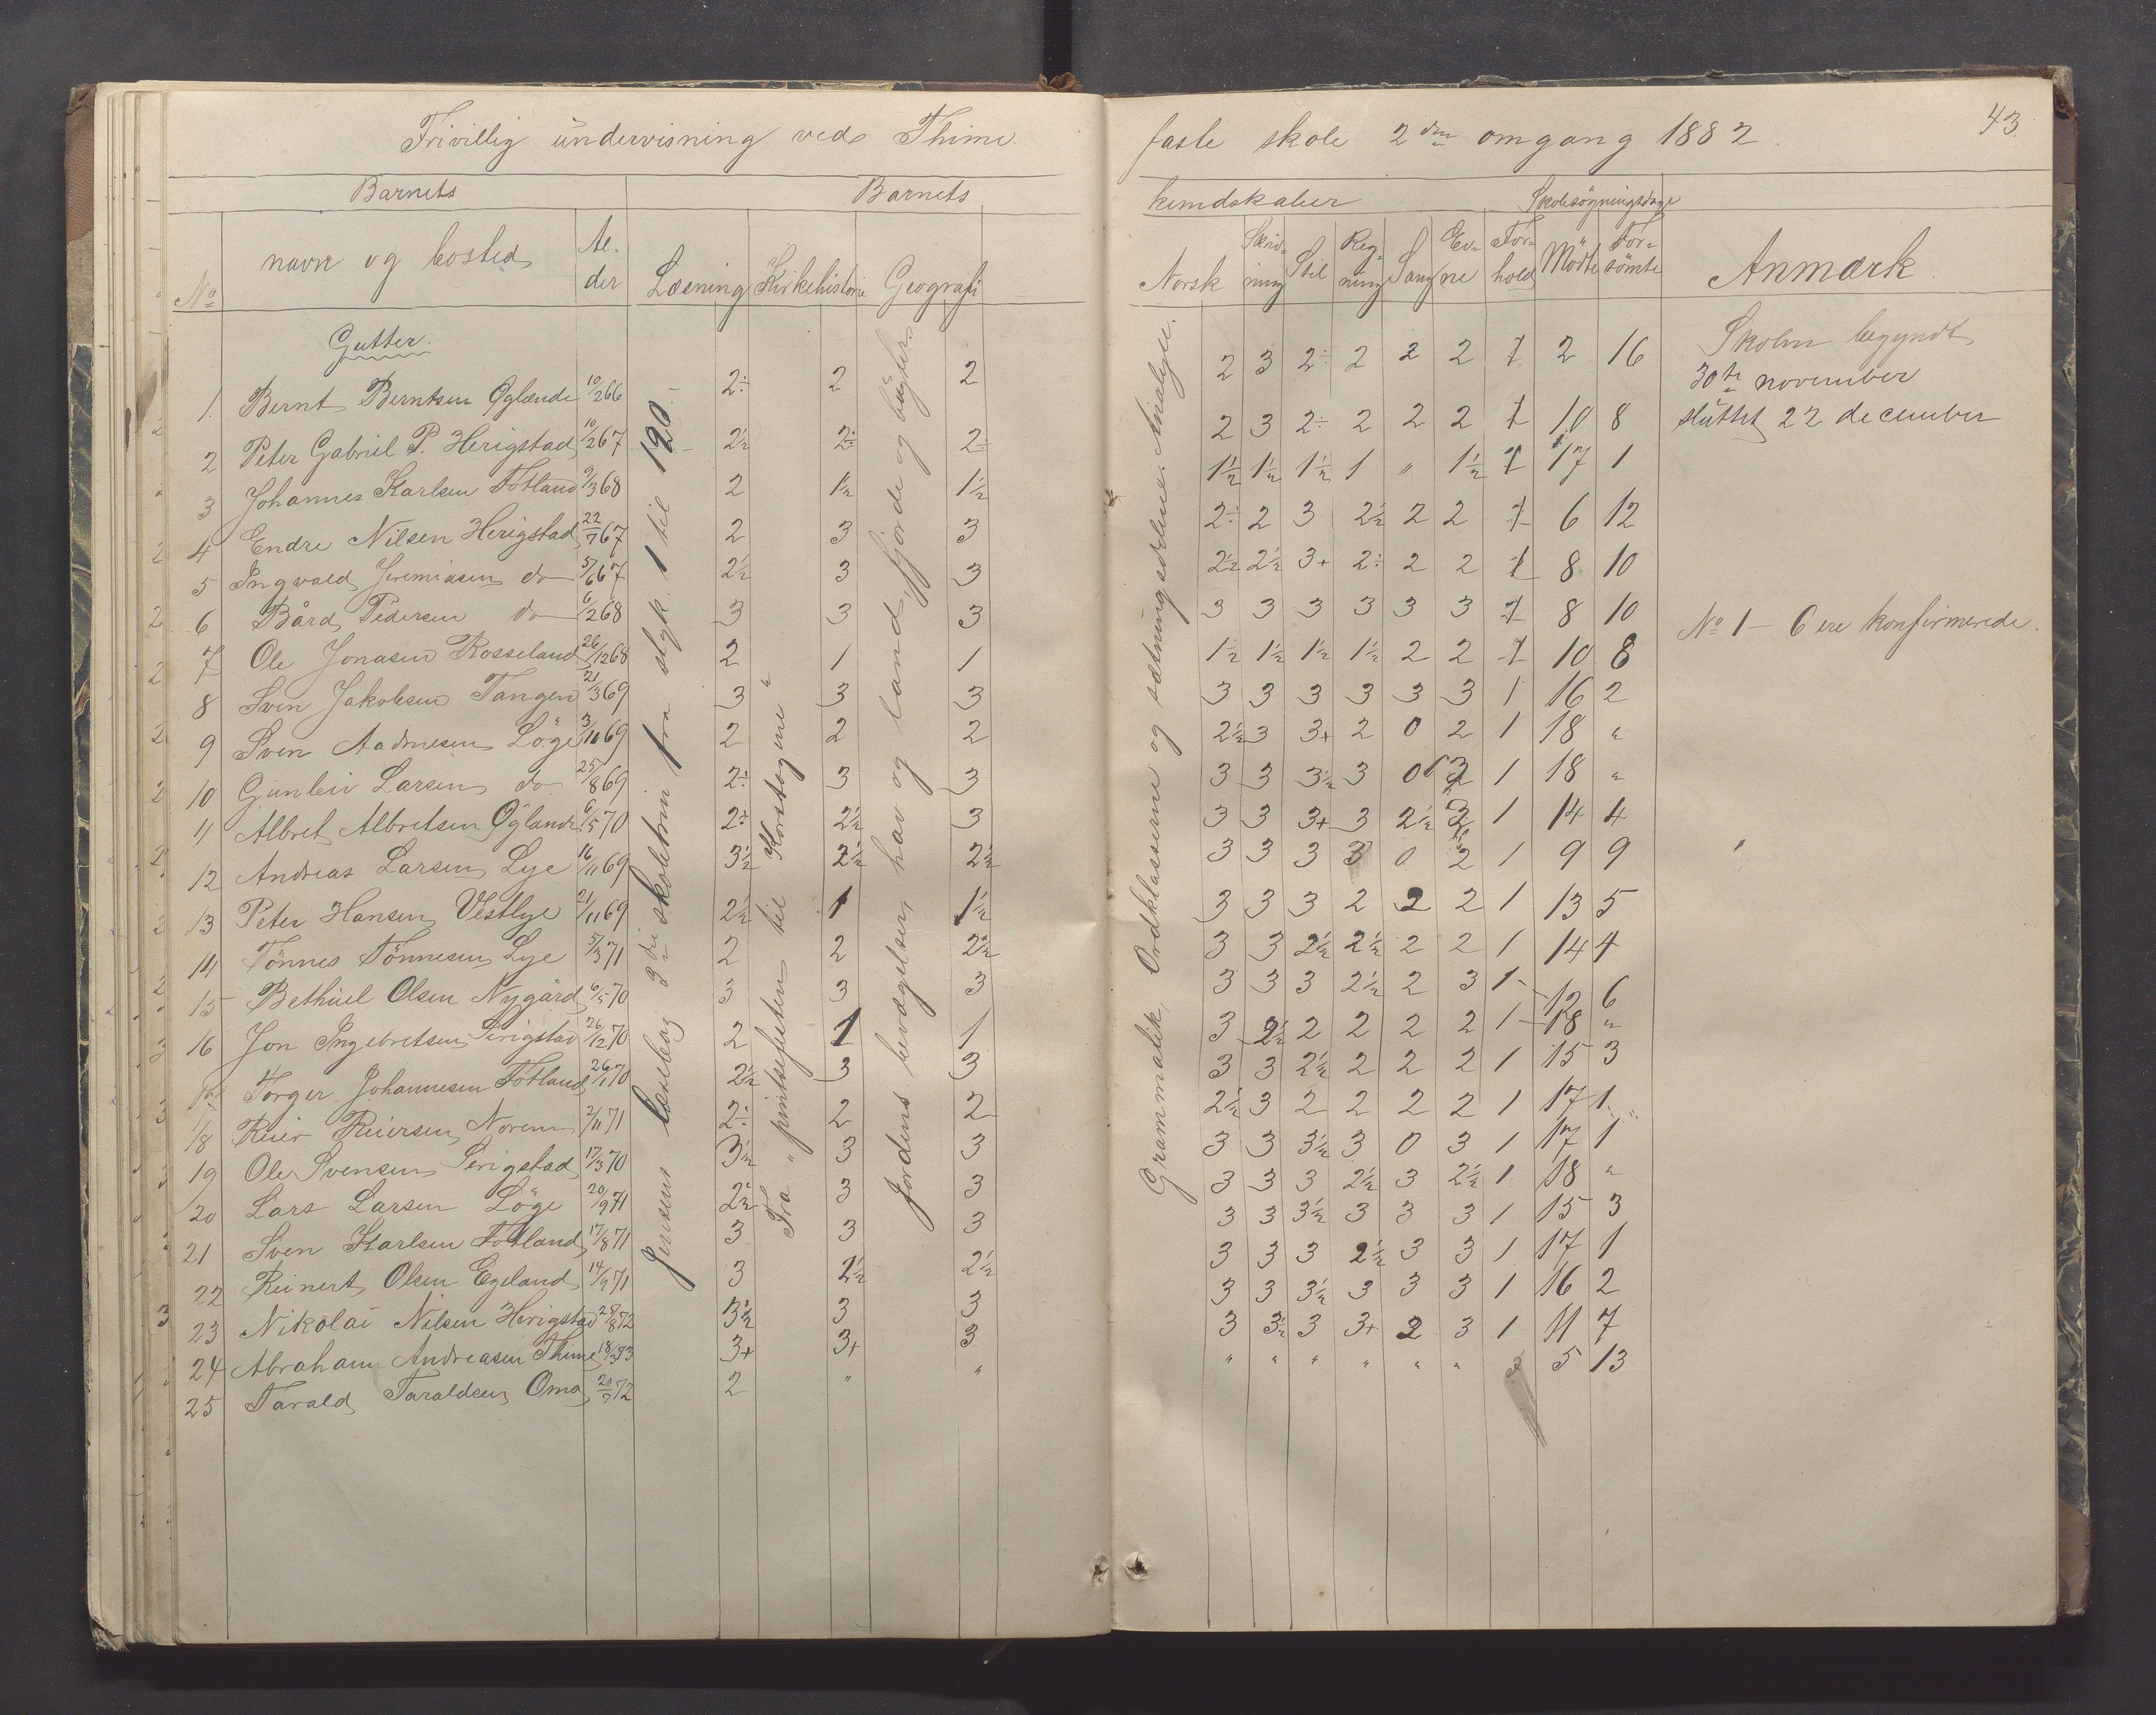 Frivillig undervisning ved Thime
Barnets Barnets
No navn og bosted Al- der Læsning Kirkehistorie Geografi
Gutter.
1. Bernt Berntsen Øglænde 10/2 66 2÷ 2 2
2 Peter Gabriel P. Herigstad 10/2 67 2½ 2÷ 2÷
3 Johannes Karlsen Fotland 9/3 68 2 1½ 1½
4 Endre Nilsen Herigstad 22/7 67 2 3 3
5 Ingvald Jeremiasen do 5/6 67 2½ 3 3
6 Bård Pedersen do 6/2 68 3 3 3
7 Ole Jonasen Rosseland 26/12 68 2 1 1
8 Sven Jakobsen Tangen 21/3 69 3 3 3
9 Sven Aadnesen Löge 3/10 69 2 2 2
10 Gunleiv Larsen do 25/8 69 2÷ 3 3
11 Albret Albretsen Øglande 6/5 70 2÷ 2½ 3
12 Andreas Larsen Lye 16/11 69 3½ 2½ 2½
13 Peter Hansen Vestlye 21/11 69 2½ 1 1½
14 Tönnes Tönnesen Lye 5/3 71 2 2 2½
15 Bethuel Olsen Nygård 6/5 70 3 3 3
16 Jon Ingebretsen Serigstad 26/12 70 2 1 1
17 Torger Johannesen Fotland 26/1 70 2½ 3 3
18 Reier Reiersen Norem 2/11 71 2÷ 2 2
19 Ole Svensen Serigstad 17/3 70 3½ 3 3
20 Lars Larsen Löge 20/9 71 2½ 3 3
21 Sven Karlsen Fotland 17/8 71 3 3 3
22 Reinert Olsen Egeland 14/9 71 3 2½ 2½
23 Nikolai Nilsen Herigstad 25/8 72 3½ 3 3
24 Abraham Andreasen Thime 18/3 73 3+ 3+ 3
25 Tarald Taraldsen Oma 20/7 72 2 " "
Jensens læsebog 2die skoletrin fra styk. 1 til 120
Fra pintsefesten til Korstogene
Jordens bevægelsen, hav og land, fjorde og bugter.
faste skole 2den omgang 1882
43.
kundskaber Skolesögningsdage
Norsk Skriv- ning Stil Reg- ning Sang Ev- ne For- hold Mödte For- sömte Anmærk.
2 3 2÷ 2 2 2 1 2 16
2 3 2÷ 2 2 2 1 10 8
1½ 1½ 1½ 1 " 1½ 1 17 1
2÷ 2 3 2½ 2 2 1 6 12
2½ 2½ 3+ 2÷ 2 2 1 8 10
3 3 3 3 3 3 1 8 10
1½ 1½ 1½ 1½ 2 2 1 10 8
3 3 3 3 3 3 1 16 2
2½ 3 3+ 2 0 2 1 18 "
3 3 3½ 3 0 3 1 18 "
3 3 3+ 3 2½ 3 1 14 4
3 3 3 3 0 2 1 9 9
3 3 3 2 2 2 1 13 5
3 3 2½ 2½ 2 2 1 14 4
3 3 3 2½ 2 3 1 12 6
3 2½ 2 2 2 2 1 18 "
3 3 2½ 2 2 2 1 15 3
2½ 3 2 2 2 2 1 17 1
3 3 3½ 3 0 3 1 17 1
3 3 3 2½ 3 2½ 1 18 "
3 3 3½ 3 3 3 1 15 3
3 3 3 2½ 3 3 1 17 1
3 3 3½ 3 3 3 1 16 2
3 3½ 3 3+ 2 3 1 11 7
" " " " " " 5 13
Grammatik, Ordklasserne og sætningsdelene. Analyse.
Skolen begyndt
30te november
sluttet 22 december
No 1 - 6 ere konfirmerede.